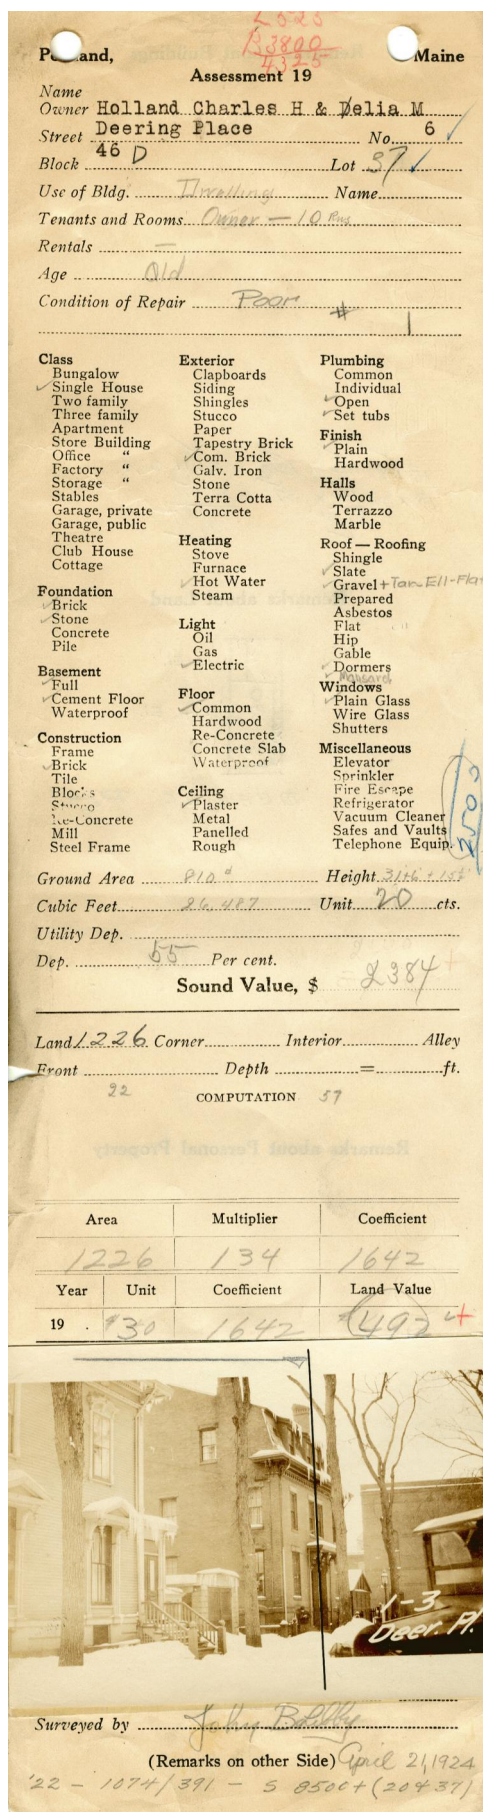 L 525
B 3800
4325
Portland, Maine
Assessment 19
Name
Owner Holland Charles H & Delia M
Street Deering Place No. 6 ✓
Block 46 D Lot 37 ✓
Use of Bldg. Dwelling Name
Tenants and Rooms Owner — 10 Rms
Rentals —
Age Old
Condition of Repair Poor
# 1
Class
Bungalow
✓ Single House
Two family
Three family
Apartment
Store Building
Office "
Factory "
Storage "
Stables
Garage, private
Garage, public
Theatre
Club House
Cottage
Foundation
✓ Brick
✓ Stone
Concrete
Pile
Basement
✓ Full
✓ Cement Floor
Waterproof
Construction
Frame
✓ Brick
Tile
Blocks
Stucco
Re-Concrete
Mill
Steel Frame
Exterior
Clapboards
Siding
Shingles
Stucco
Paper
Tapestry Brick
✓ Com. Brick
Galv. Iron
Stone
Terra Cotta
Concrete
Heating
Stove
Furnace
✓ Hot Water
Steam
Light
Oil
Gas
✓ Electric
Floor
✓ Common
Hardwood
Re-Concrete
Concrete Slab
Waterproof
Ceiling
✓ Plaster
Metal
Panelled
Rough
Plumbing
Common
Individual
✓ Open
✓ Set tubs
Finish
✓ Plain
Hardwood
Halls
Wood
Terrazzo
Marble
Roof — Roofing
Shingle
✓ Slate
✓ Gravel + Tar Ell-Flat
Prepared
Asbestos
Flat
Hip
Gable
✓ Dormers
✓ Mansard
Windows
✓ Plain Glass
Wire Glass
Shutters
Miscellaneous
Elevator
Sprinkler
Fire Escape
Refrigerator
Vacuum Cleaner
Safes and Vaults
Telephone Equip.
2500
Ground Area 810 Height
Cubic Feet 26,487 Unit 20 cts.
Utility Dep.
Dep. 55 Per cent.
Sound Value, $ 2384 +
Land 1226 Corner Interior Alley
Front Depth = ft.
22 COMPUTATION 57
Area Multiplier Coefficient
1226 134 1642
Year Unit Coefficient Land Value
19 . $30 1642 $492 +
1-3
Deer. Pl.
Surveyed by John B Libby
(Remarks on other Side) April 21, 1924
'22 - 1074/391 - S 8500 + (20 & 37)